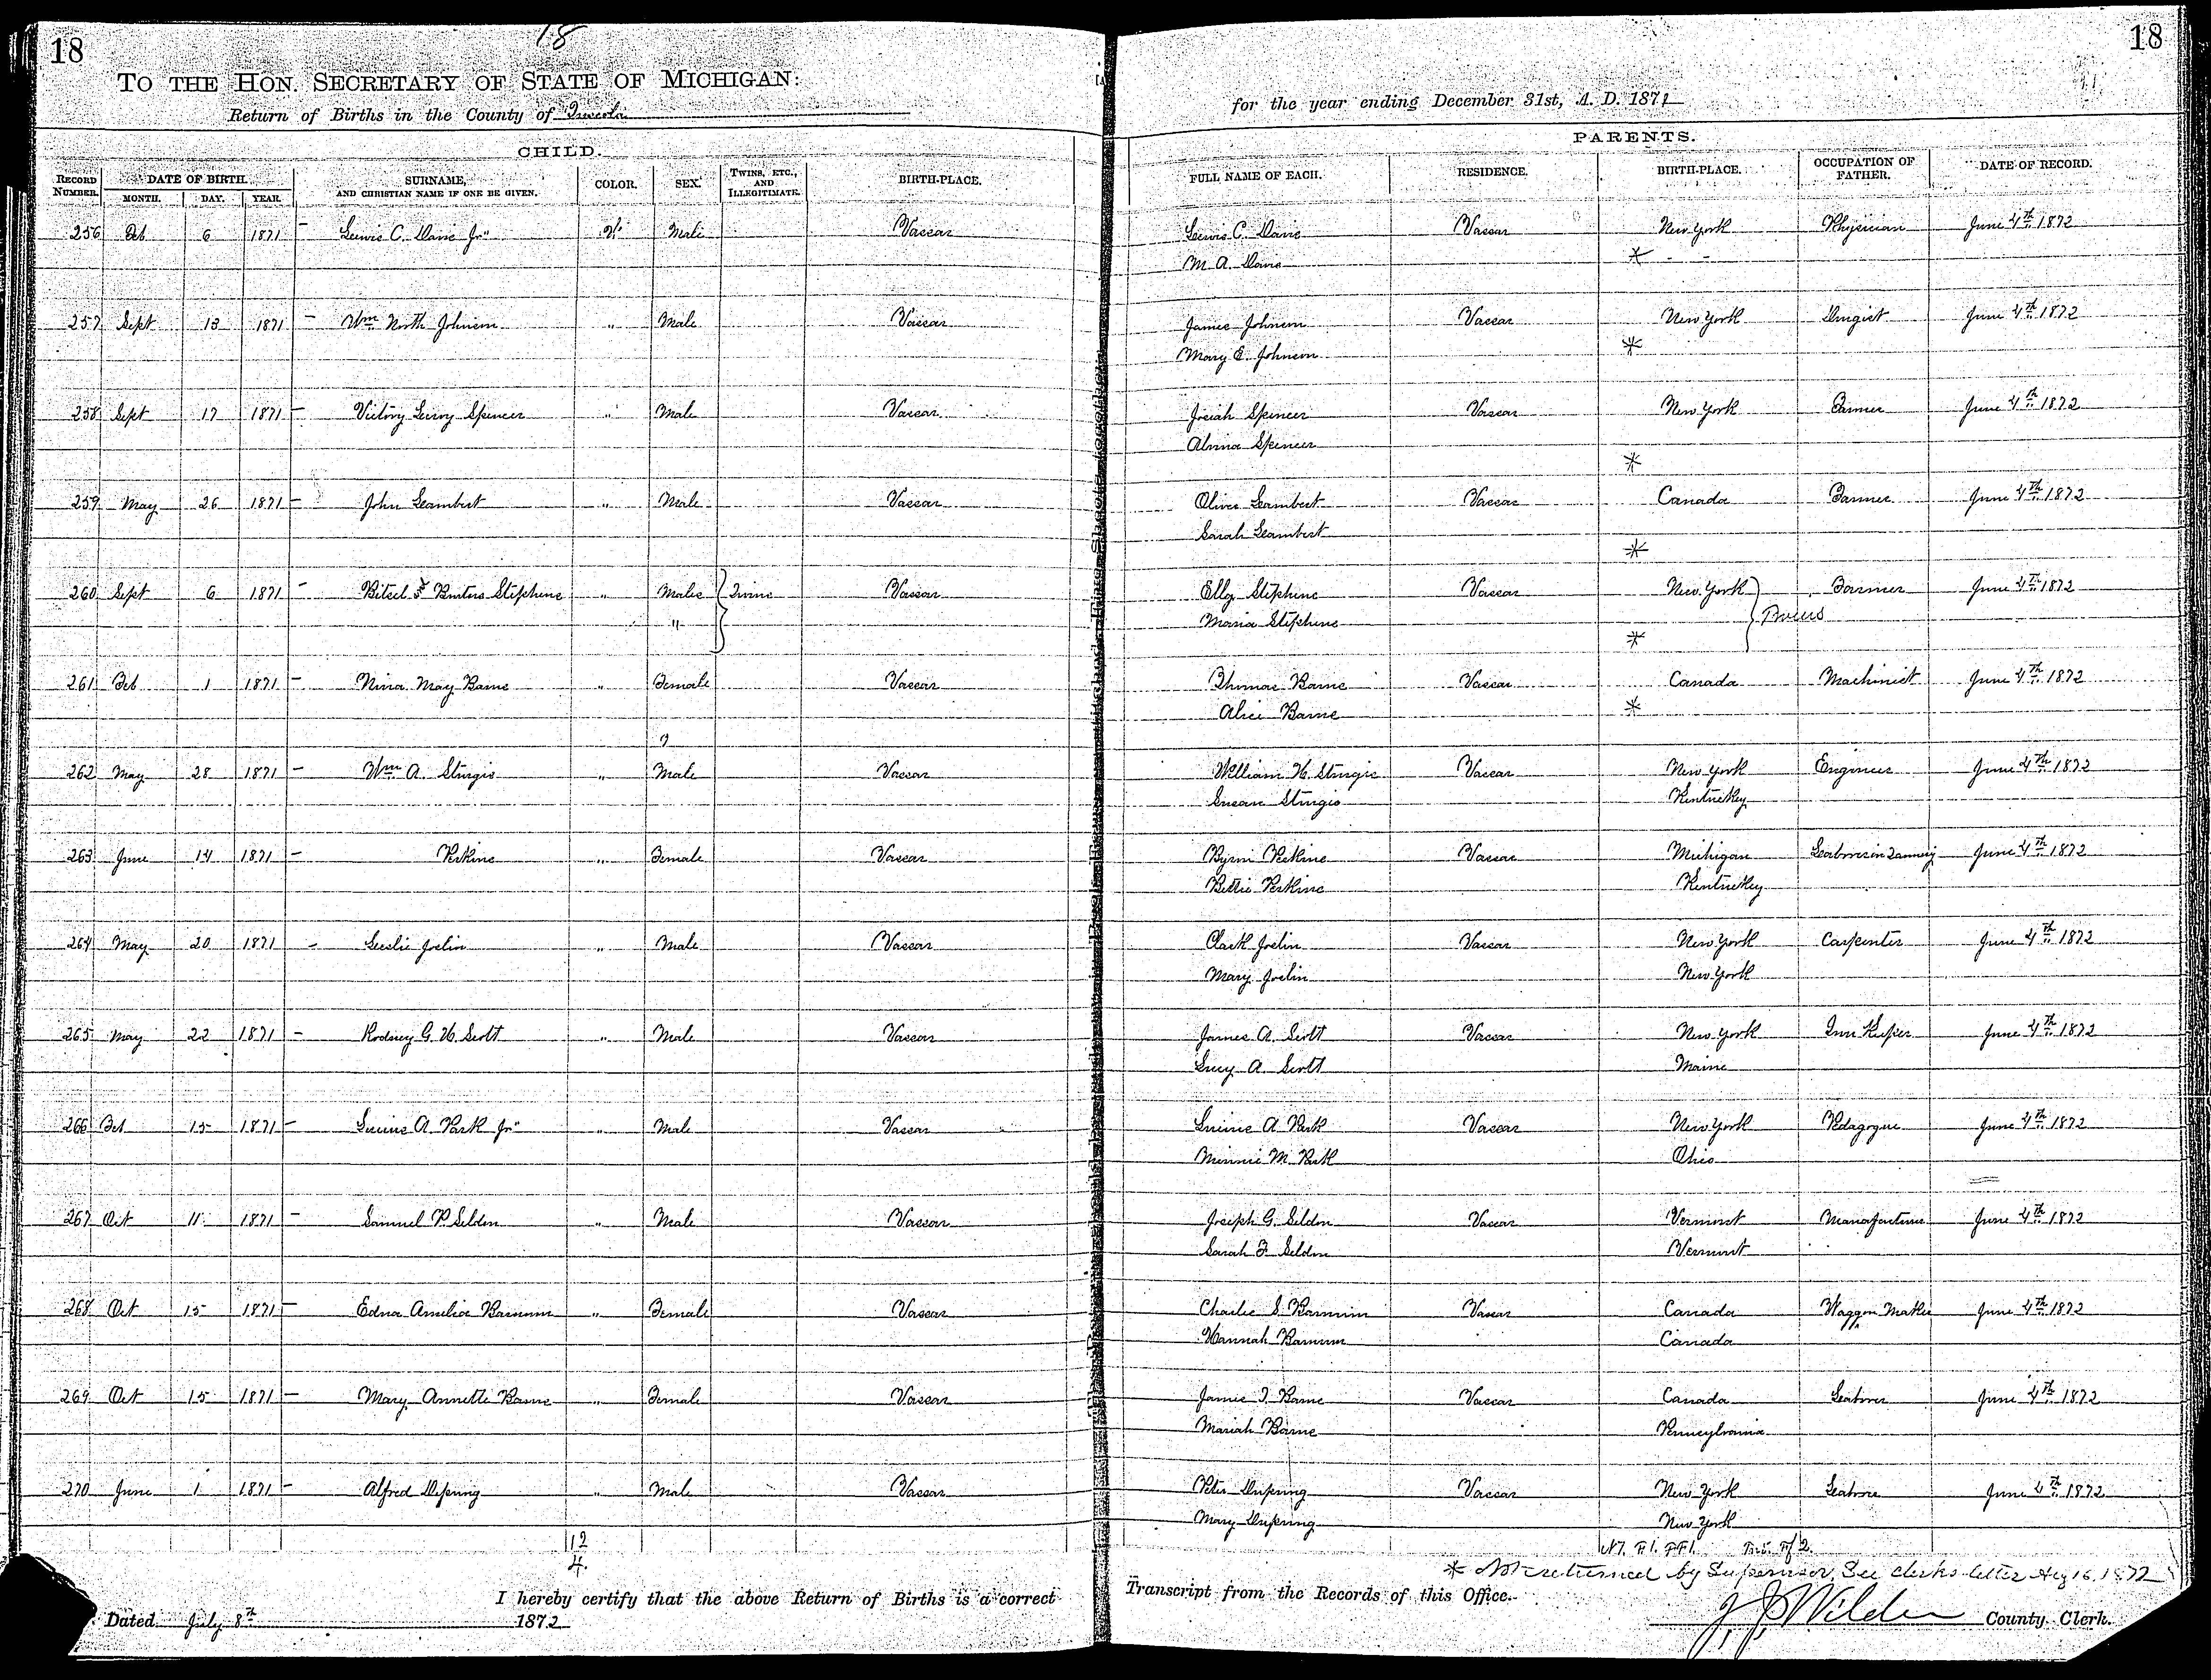 18
18
18
TO THE HON. SECRETARY OF STATE OF MICHIGAN:
Return of Births in the County of Tuscola
for the year ending December 31st, A. D. 1871
CHILD.
PARENTS.
RECORD NUMBER. DATE OF BIRTH. MONTH. DAY. YEAR. SURNAME, AND CHRISTIAN NAME IF ONE BE GIVEN. COLOR. SEX. TWINS, ETC., AND ILLEGITIMATE. BIRTH-PLACE. FULL NAME OF EACH. RESIDENCE. BIRTH-PLACE. OCCUPATION OF FATHER. DATE OF RECORD.
256 Feb 6 1871 – Lewis C. Davis Jr" W Male Vassar Lewis C. Davis Vassar New York Physician June 4th 1872
M A. Davis *
257 Sept 13 1871 – Wm North Johnson " Male Vassar James Johnson Vassar New York Drugist June 4th 1872
Mary E. Johnson *
258 Sept 17 1871 – Victory Leroy Spencer " Male Vassar Josiah Spencer Vassar New York Farmer June 4th 1872
Almira Spencer
*
259 May 26 1871 – John Lambert " Male Vassar Oliver Lambert Vassar Canada Farmer June 4th 1872
Sarah Lambert
*
260 Sept 6 1871 – & Stephens " Males Twins Vassar Stephens Vassar New York Farmer June 4th 1872
" Maria Stephens Twins
*
261 Feb 1 1871 – Nina May Barns " Female Vassar Thomas Barns Vassar Canada Machinist June 4th 1872
Alice Barns *
262 May 28 1871 – Wm A. Sturgis " Male Vassar William H. Sturgis Vassar New York Engineer June 4th 1872
Susan Sturgis Kentuckey
263 June 14 1871 – Perkins " Female Vassar Byron Perkins Vassar Michigan Laborer in Tannery June 4th 1872
Bettie Perkins Kentuckey
264 May 20 1871 – Leslie Joslin " Male Vassar Clark Joslin Vassar New York Carpenter June 4th 1872
Mary Joslin New York
265 May 22 1871 – Rodney G. H Scott " Male Vassar James A. Scott Vassar New York Inn Keeper June 4th 1872
Lucy A. Scott Maine
266 Feb 15 1871 – Lucius A. Park Jr" " Male Vassar Lucius A Park Vassar New York Pedagogue June 4th 1872
Minnie M. Park Ohio
267 Oct 11 1871 – Samuel P Selden " Male Vassar Joseph G. Selden Vassar Vermont Manufacturer June 4th 1872
Sarah F. Selden Vermont
268 Oct 15 1871 – Edna Amelia Barnum " Female Vassar Charles S. Barnum Vassar Canada Waggon Maker June 4th 1872
Hannah Barnum Canada
269 Oct 15 1871 – Mary Annette Barns " Female Vassar James T. Barns Vassar Canada Laborer June 4th 1872
Mariah Barns Pennsylvania
270 June 1 1871 – Alfred " Male Vassar Peter Vassar New York Laborer June 4th 1872
Mary New York
12
4.
* Not returned by Supervisor. See clerks letter Aug 16, 1872
I hereby certify that the above Return of Births is a correct Transcript from the Records of this Office.
Dated July 8th 1872 J. J. Wilder County Clerk.